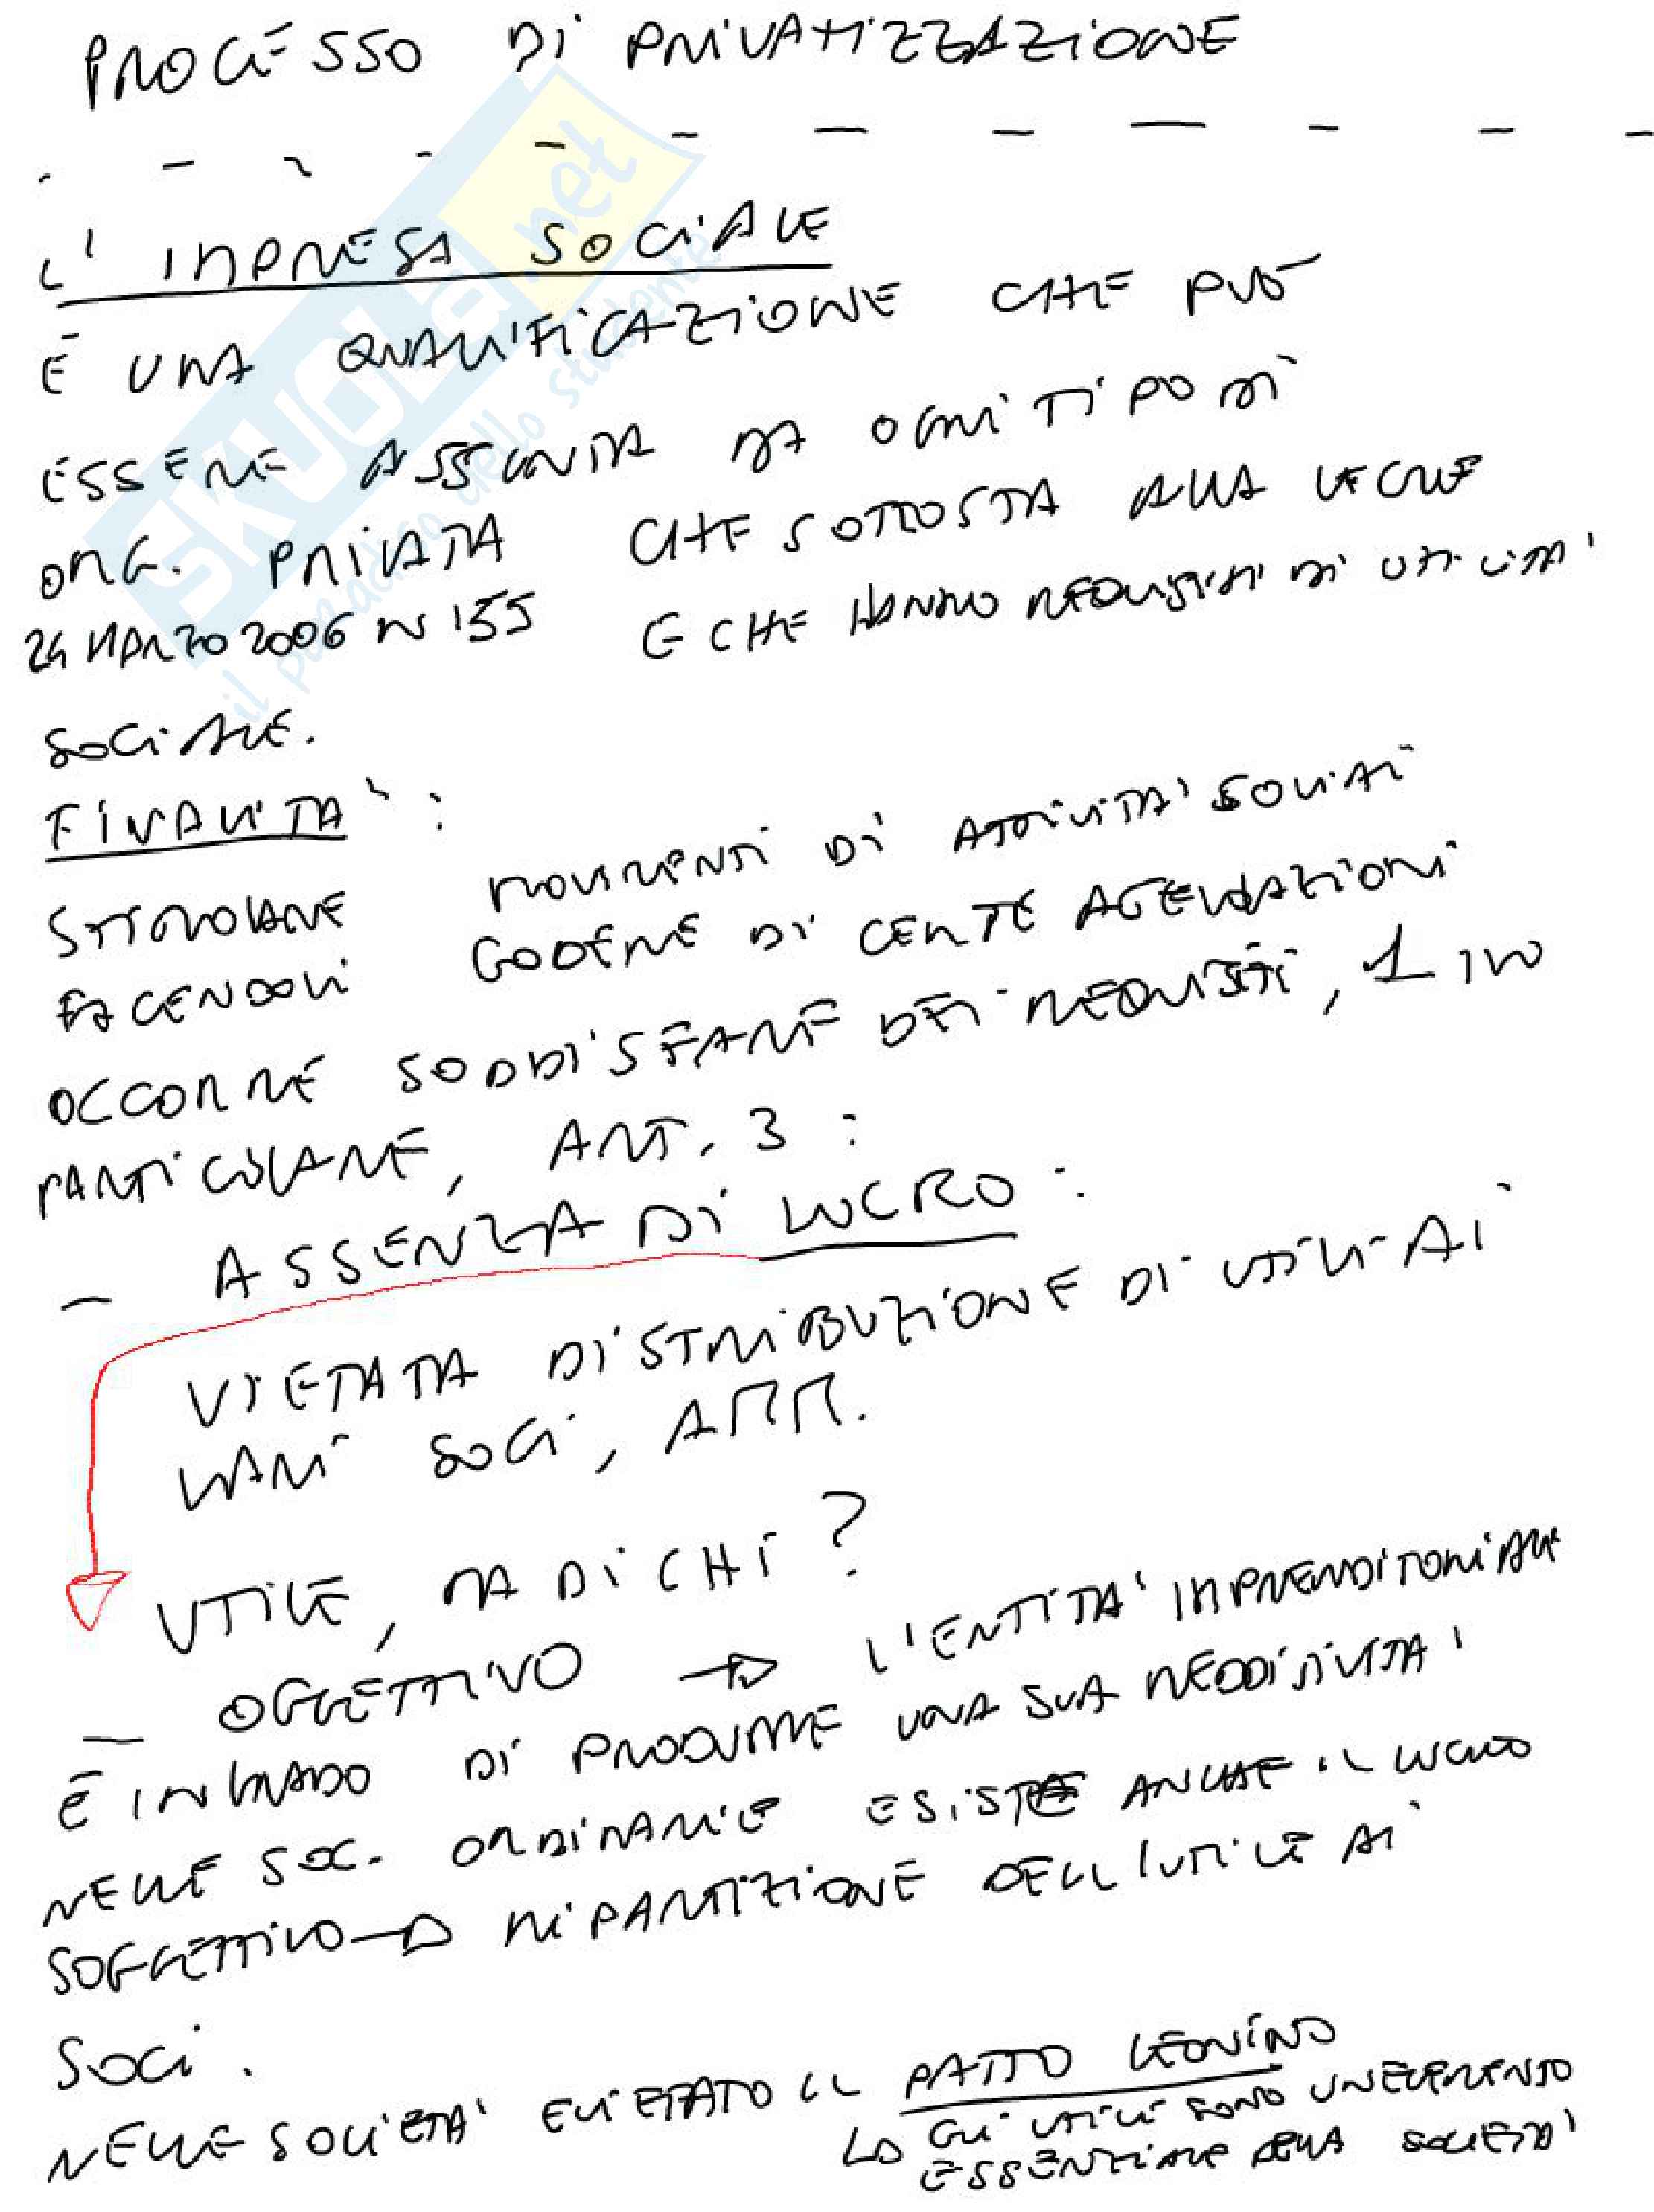 PROCESSO DI PRIVATIZZAZIONE
L'IMPRESA SOCIALE
È UNA QUALIFICAZIONE CHE PUÒ
ESSERE ASSUNTA DA OGNI TIPO DI
ORG. PRIVATA CHE SOTTOSTA ALLA LEGGE
24 MARZO 2006 N 155 E CHE HANNO REQUISITI DI UTILITA'
SOCIALE.
FINALITA':
STIMOLARE MOVIMENTI DI ATTIVITA' SOCIALI
FACENDOLI GODERE DI CERTE AGEVOLAZIONI
OCCORRE SODDISFARE DEI REQUISITI, 1 IN
PARTICOLARE, ART. 3:
- ASSENZA DI LUCRO:
VIETATA DISTRIBUZIONE DI UTILI AI
VARI SOCI, AMM.
UTILE, MA DI CHI?
- OGGETTIVO → L'ENTITA' IMPRENDITORIALE
È IN GRADO DI PRODURRE UNA SUA REDDITIVITA'
NELLE SOC. ORDINARIE ESISTE ANCHE IL LUCRO
SOGGETTIVO → RIPARTIZIONE DELL'UTILE AI
SOCI.
NELLE SOCIETA' E VIETATO IL PATTO LEONINO
↳ GLI UTILI SONO UN ELEMENTO
ESSENZIALE DELLA SOCIETA'
SKUOLA.net
il paradiso dello studente